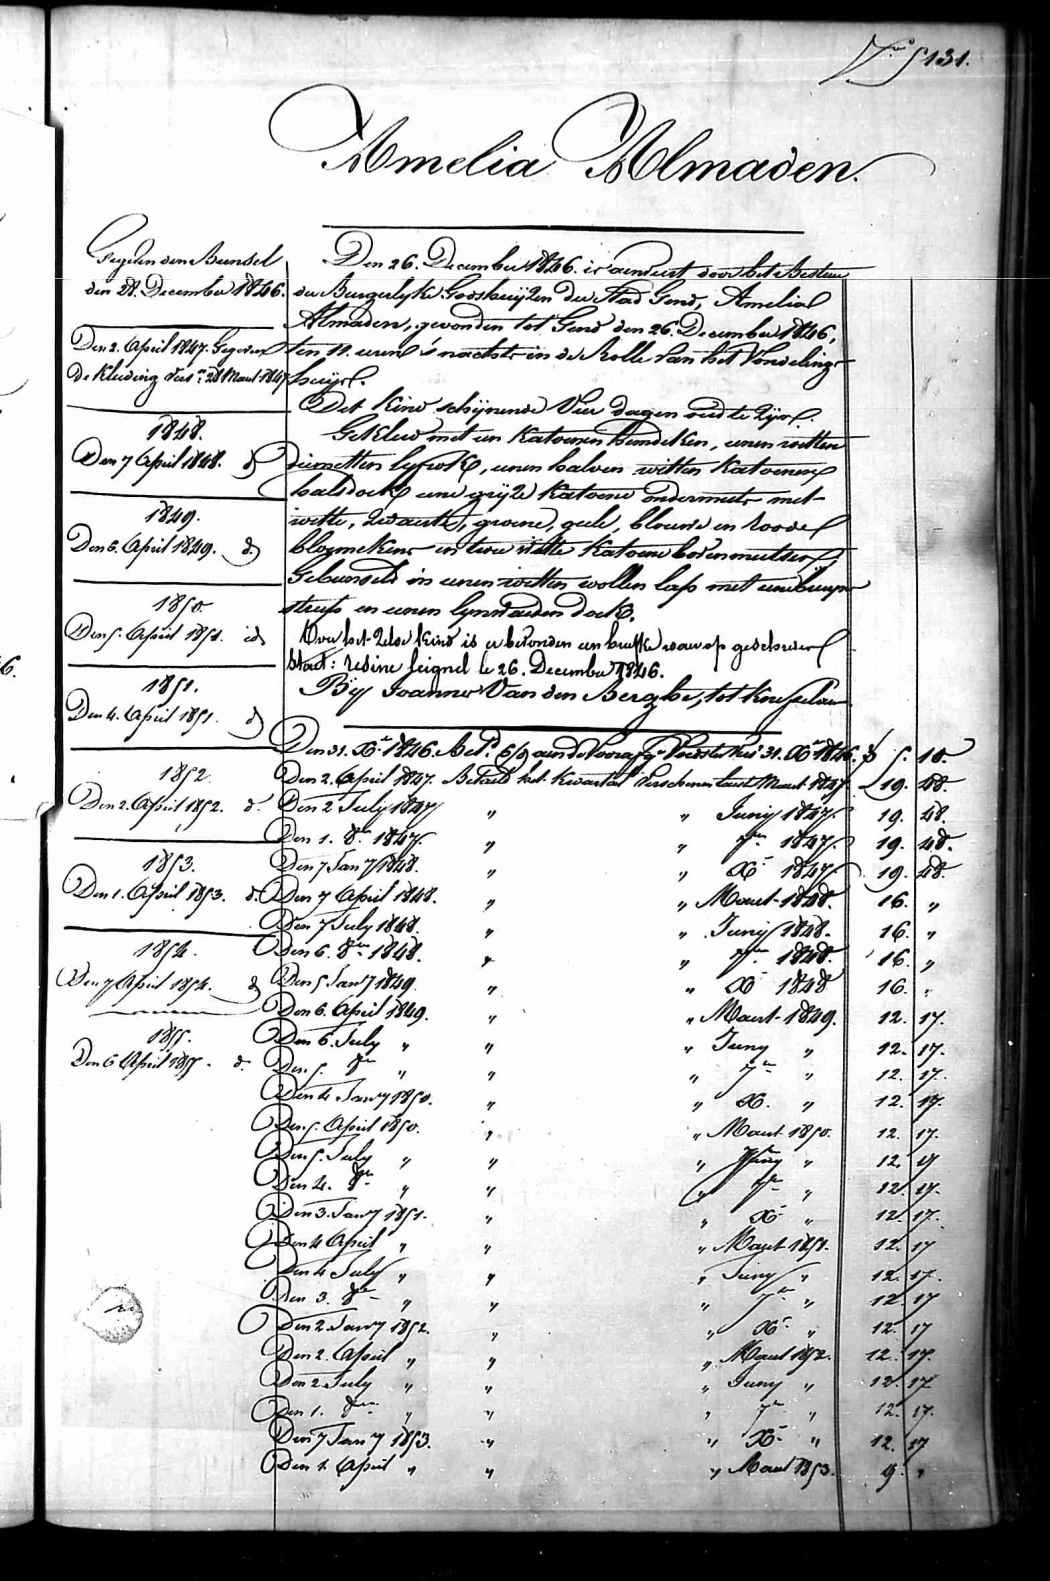 131.
Amelia Almaden.
Gegeven den Bunsel
den 28. December 1846.
Den 2. April 1847. Gegeven
de Kleding 28 Maert 1847
1848.
Den 7 April 1848. d
1849.
Den 6. April 1849. d
1850
Den 5. April 1851. id
1851.
Den 4. April 1851. d
1852
Den 2. April 1852. d.
1853.
Den 1. April 1853. d.
1854.
Den 7 April 1854. d
1855.
Den 6 April 1855. d.
Den 26. December 1846. is aenveert door het Bestuer
der Burgerlyke Godshuyzen der Stad Gend, Amelia
Almaden, gevonden tot Gend den 26. December 1846,
ten 11. uren 's nachts in de Rolle van het Vondelings
huys.
Het Kind schynende Vier dagen oud te zyn.
Gekleed met een Katoenen hemdeken, eenen witten
diemetten lyfrok, eenen halven witten Katoenen
halsdoek eene gryze Katoene ondermuts met
witte, zwarte, groene, geele, blauwe en roode
bloemekens en twee witte Katoene bovenmutsen
Gebunseld in eenen witten wollen lap met eene bruyne
streep en eenen lynwaeden doek.
Over het zelve Kind is er bevonden een briefke waer op geschreven
staet: redine seignel le 26. December 1846.
By Joannes Van den Berghe, tot Knesselaere
Den 31. Xber 1846. 31. Xber 1846. f 5. 10.
Den 2. April 1847. Betaeld het Kwartael Verschenen laest Maert 1847. 19. 48.
Den 2 July 1847 " " Juny 1847. 19. 48.
Den 1. 8er 1847. " " 7er 1847. 19. 48.
Den 7 Jany 1848. " " Xr 1847. 19. 48.
Den 7 April 1848. " " Maert 1848. 16. "
Den 7 July 1848. " " Juny 1848. 16. "
Den 6. 8er 1848. " " 7er 1848. 16. "
Den 5 Jany 1849. " " Xr 1848 16. "
Den 6. April 1849. " " Maert 1849. 12. 17.
Den 6. July " " " Juny " 12. 17.
Den 5. 8er " " " 7er " 12. 17.
Den 4 Jany 1850. " " X. " 12. 17.
Den 5. April 1850. " " Maert 1850. 12. 17.
Den 5. July " " " Juny " 12. 17
Den 4. 8er " " " 7er " 12. 17.
Den 3. Jany 1851. " " Xr " 12. 17.
Den 4 April " " " Maert 1851. 12. 17
Den 4 July " " " Juny " 12. 17.
Den 3. 8er " " " 7er " 12. 17
Den 2 Jany 1852. " " Xr " 12. 17
Den 2. April " " " Maert 1852. 12. 17.
Den 2 July " " " Juny " 12. 17
Den 1. 8er " " " 7er " 12. 17.
Den 7 Jany 1853. " " Xr " 12. 17
Den 1. April " " " Maert 1853. 9. "